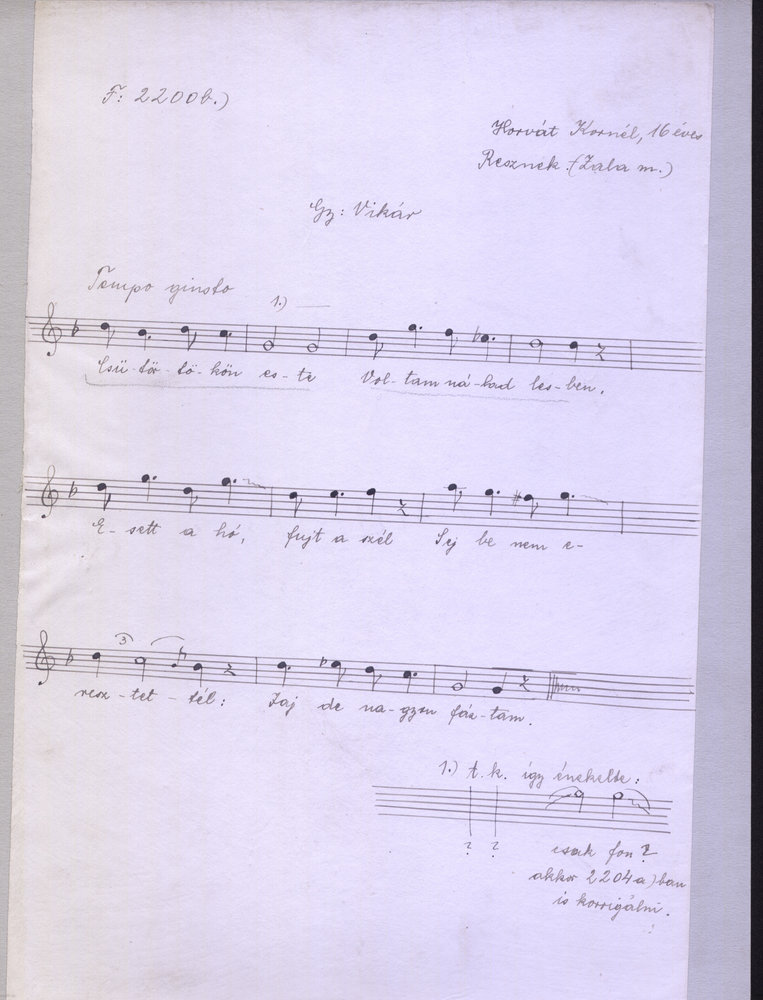 F: 2200b.)
Horvát Kornél, 16 éves
Resznek. (Zala m.)
Gy: Vikár
Tempo giusto
1.)
Csü-tör-tö-kön es-te Vol-tam ná-lad les-ben.
E-sett a hó, fujt a szél Sej be nem e-
3
resz-tet-tél: Jaj de na-gyon fáz-tam.
1.) t.k. így énekelte:
? ? csak fon?
akkor 2204a)ban
is korrigálni.